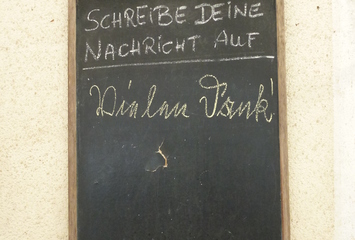 SCHREIBE DEINE
NACHRICHT AUF
Vielen Dank!